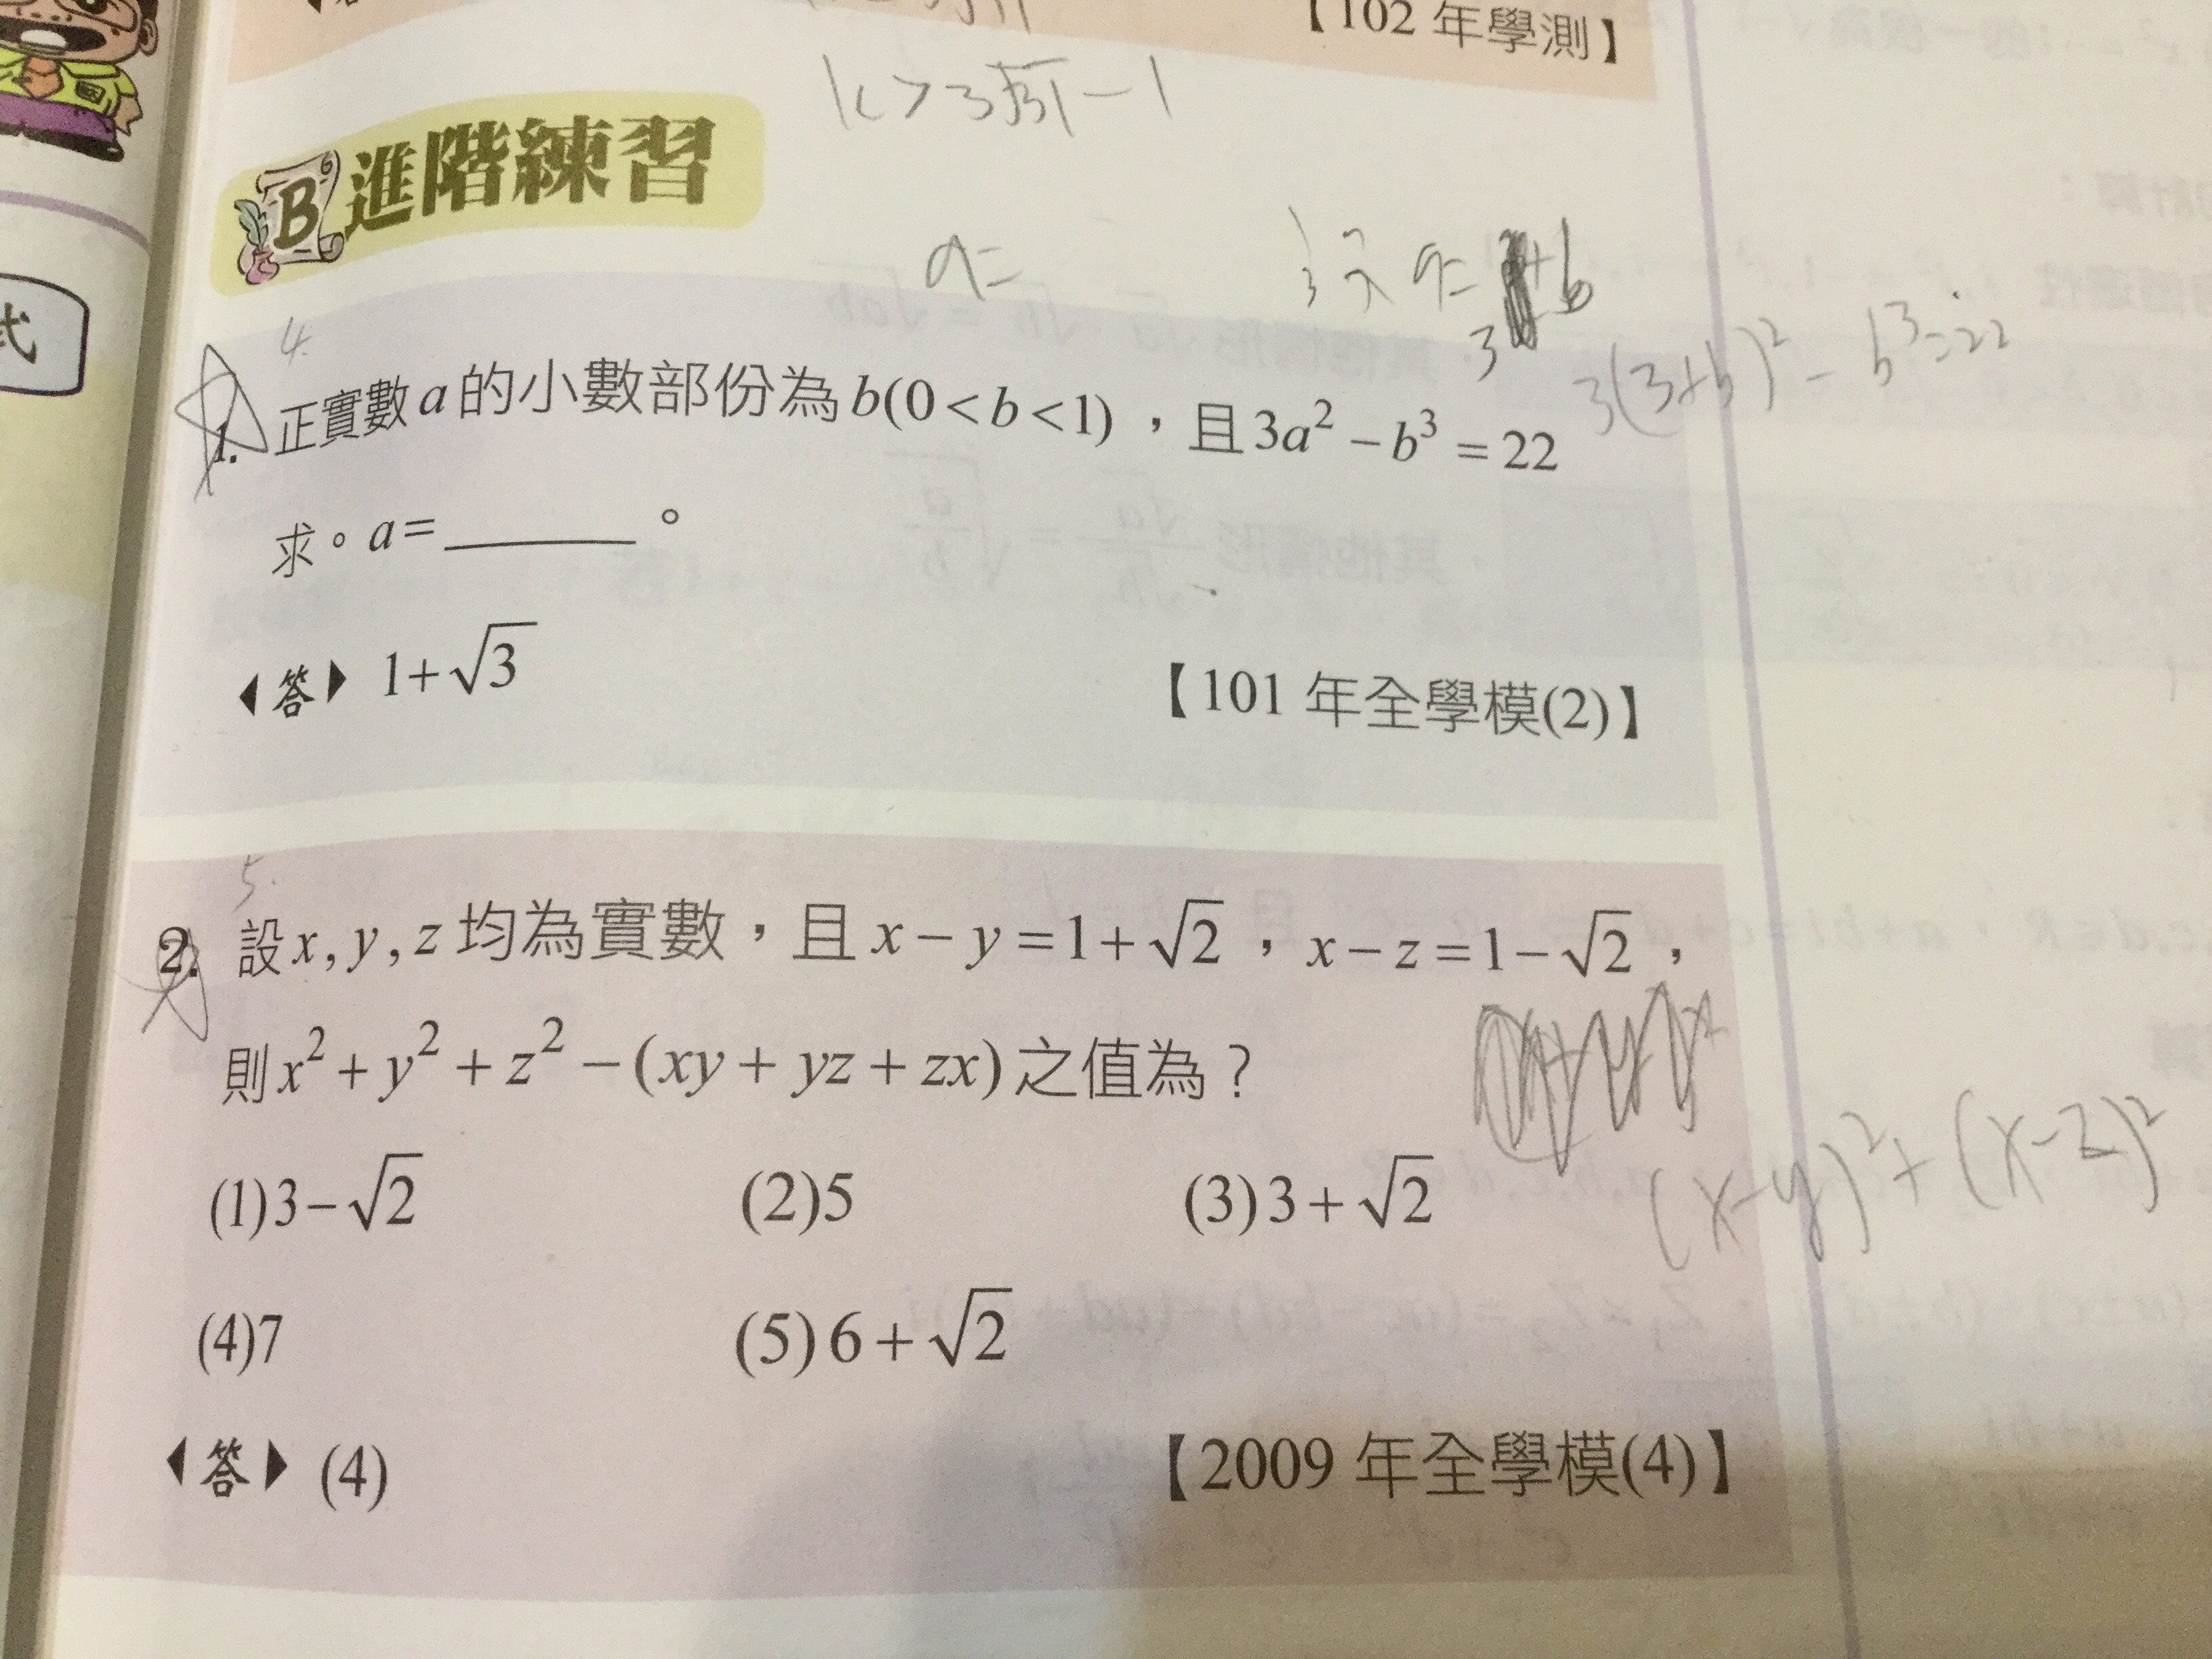 【102 年學測】
k > 3√31 - 1
B 進階練習
a=
設 a= 3+b
4.
3(3+b)² - b³ = 22
1. 正實數 a 的小數部份為 b(0 < b < 1),且 3a² − b³ = 22
求。a= ______ 。
◀答▶ 1+√3
【101 年全學模(2)】
5.
2. 設 x, y, z 均為實數,且 x − y = 1+√2 , x − z = 1−√2 ,
則 x² + y² + z² − (xy + yz + zx) 之值為?
(x-y)² + (x-z)²
(1)3−√2 (2)5 (3)3+√2
(4)7 (5)6+√2
◀答▶ (4)
【2009 年全學模(4)】
式